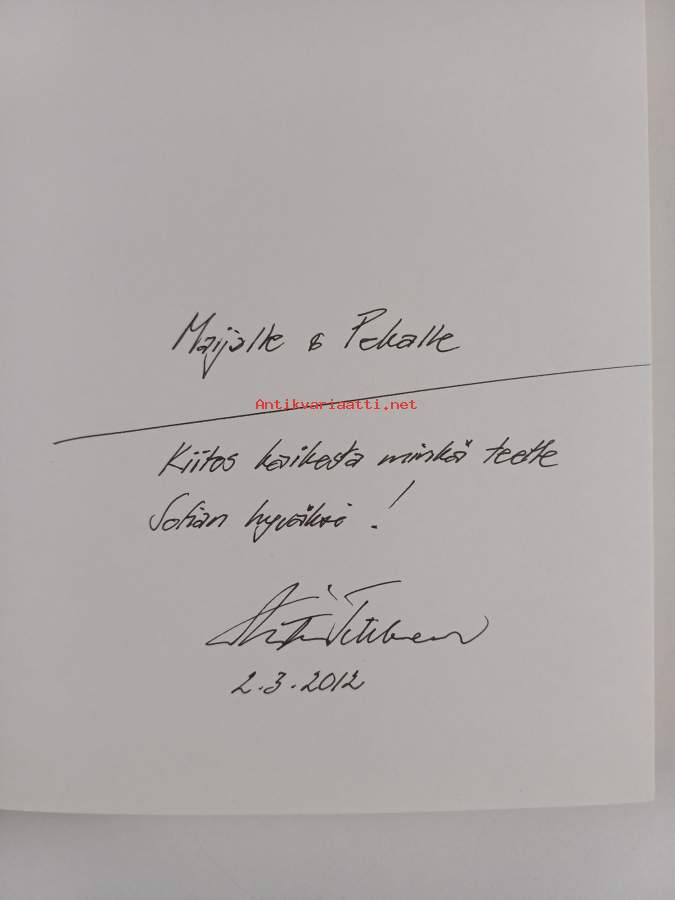 Maijalle & Pekalle
Antikvariaatti.net
Kiitos kaikesta minkä teette
Sofian hyväksi !
2.3.2012